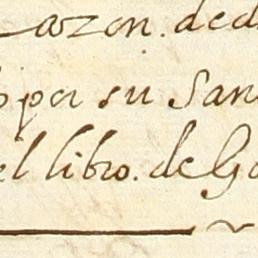 Razon. ded
por su San
el libro. de Go